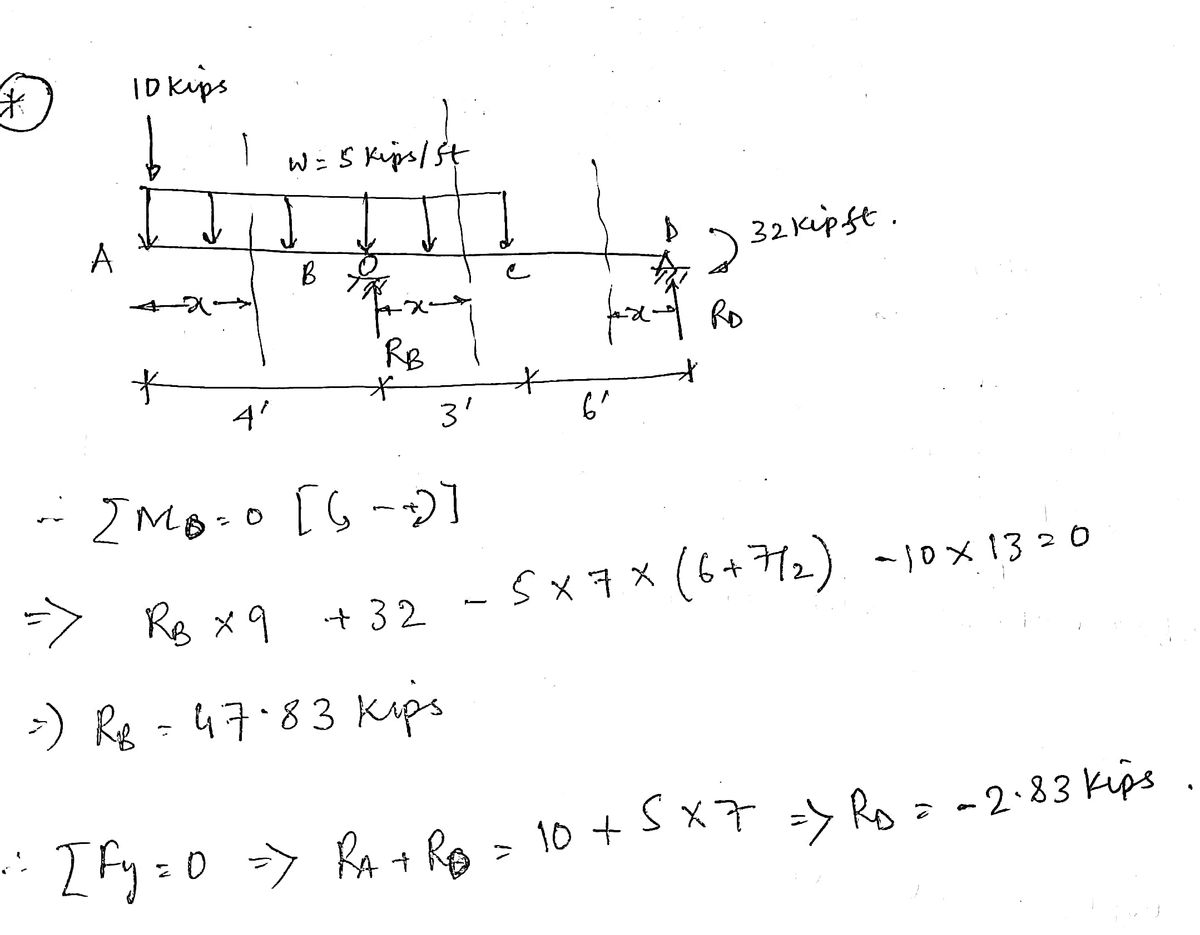 *
10 kips
W = 5 kips/ft
A B C D 32 kip ft.
x x x
R_B R_D
4' 3' 6'
∴ ΣM_D = 0 [↺ - +↻]
=> R_B × 9 + 32 - 5 × 7 × (6 + 7/2) - 10 × 13 = 0
=> R_B = 47.83 kips
∴ ΣFy = 0 => R_A + R_D = 10 + 5 × 7 => R_D = -2.83 kips.